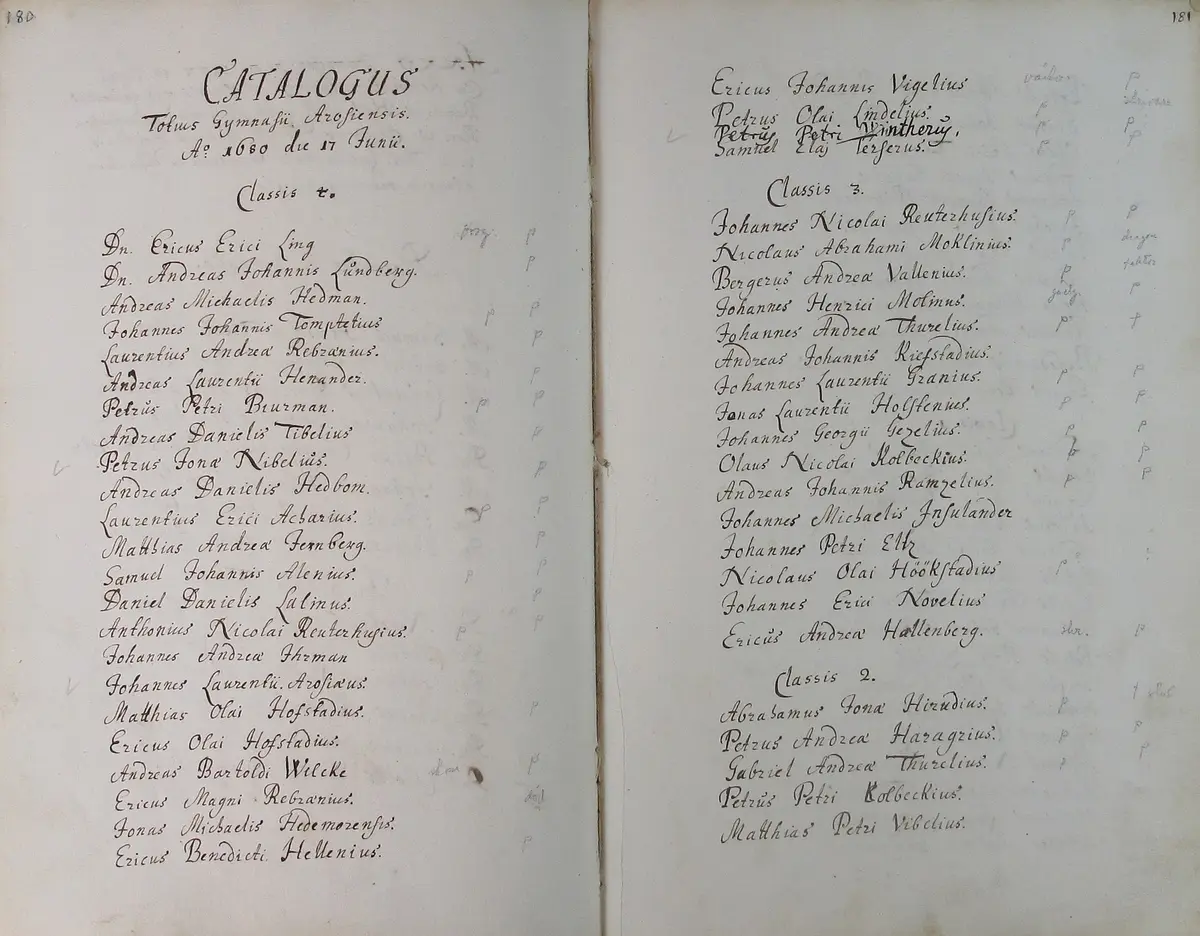 180
CATALOGUS
Totius Gymnasii Arosiensis.
Aº 1680 die 17 Junii.
Classis 4.
Dn. Ericus Erici Ling
Dn. Andreas Johannis Lundberg.
Andreas Michaelis Hedman.
Johannes Johannis Tomptetius
Laurentius Andreæ Rebzenius.
Andreas Laurentii Henander.
Petrus Petri Biurman.
Andreas Danielis Tibelius
Petrus Jonæ Nibelius.
Andreas Danielis Hedbom.
Laurentius Erici Acharius.
Matthias Andreæ Fernberg.
Samuel Johannis Alenius.
Daniel Danielis Lalinus.
Anthonius Nicolai Reuterhusius.
Johannes Andreæ Ihrman
Johannes Laurentii Arosiæus.
Matthias Olai Hofstadius.
Ericus Olai Hofstadius.
Andreas Bartoldi Welcke
Ericus Magni Rebzenius.
Jonas Michaelis Hedemorensis.
Ericus Benedicti Hellenius.
181
Ericus Johannis Vigelius
Petrus Olai Lindelius.
Petrus Petri Wintherus.
Samuel Elaj Terserus.
Classis 3.
Johannes Nicolai Reuterhusius.
Nicolaus Abrahami Moklinius.
Bergerus Andreæ Vallenius.
Johannes Henrici Molinus.
Johannes Andreæ Thurelius.
Andreas Johannis
Johannes Laurentii Granius.
Jonas Laurentii Holstenius.
Johannes Georgii Gezelius.
Olaus Nicolai Kolbeckius.
Andreas Johannis Ramzelius.
Johannes Michaelis Insulander
Johannes Petri Eltz
Nicolaus Olai Höökstadius
Johannes Erici Novelius
Ericus Andreæ Hallenberg.
Classis 2.
Abrahamus Jonæ Hirudius.
Petrus Andreæ Haragrius.
Gabriel Andreæ Thurelius.
Petrus Petri Kolbeckius.
Matthias Petri Vibelius.